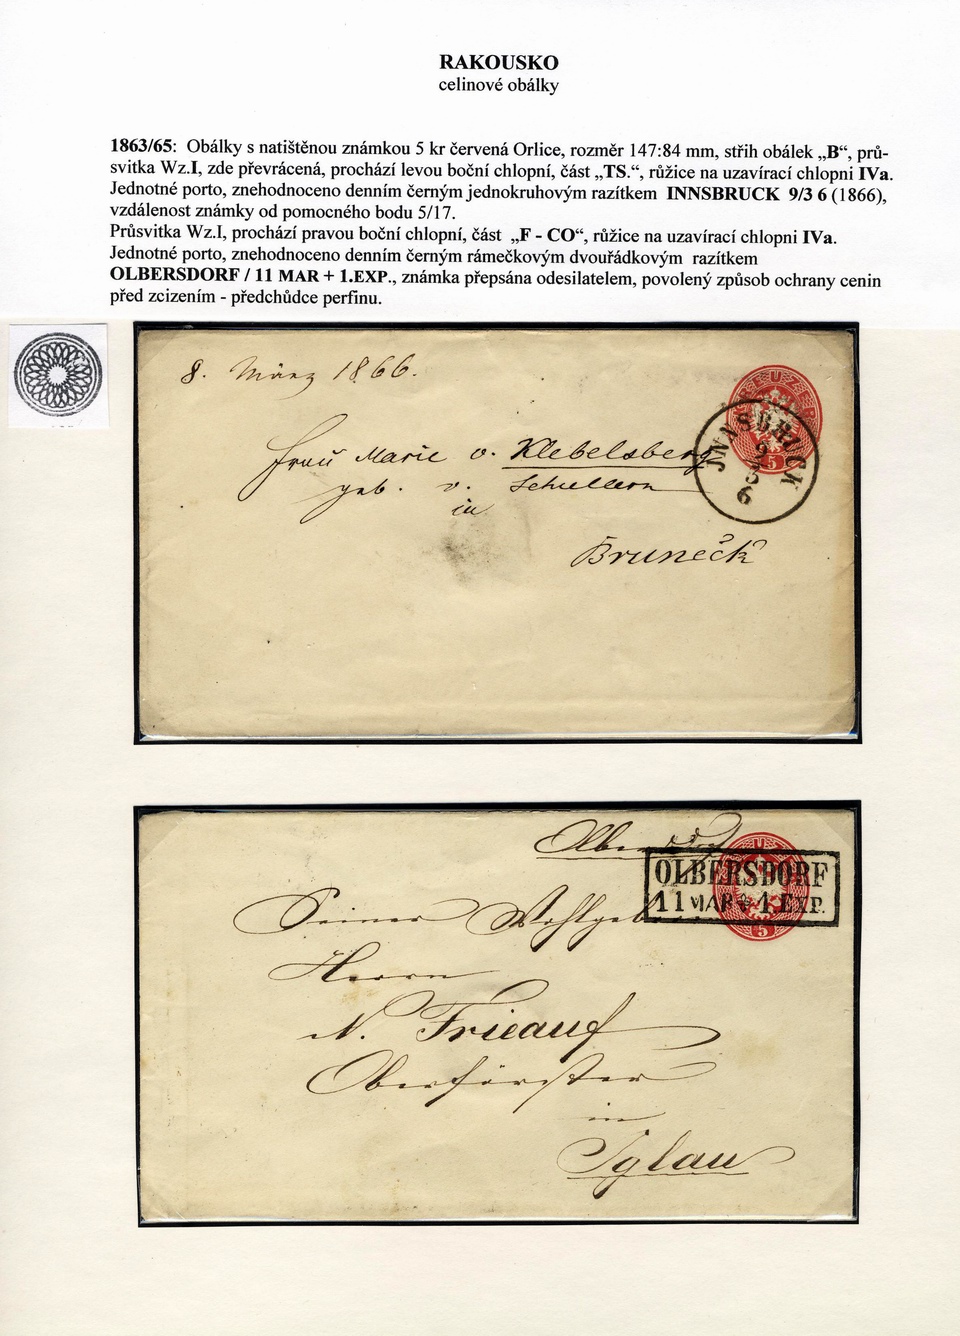 RAKOUSKO
celinové obálky
1863/65: Obálky s natištěnou známkou 5 kr červená Orlice, rozměr 147:84 mm, střih obálek „B“, prů-
svitka Wz.I, zde převrácená, prochází levou boční chlopní, část „TS.“, růžice na uzavírací chlopni IVa.
Jednotné porto, znehodnoceno denním černým jednokruhovým razítkem INNSBRUCK 9/3 6 (1866),
vzdálenost známky od pomocného bodu 5/17.
Průsvitka Wz.I, prochází pravou boční chlopní, část „F - CO“, růžice na uzavírací chlopni IVa.
Jednotné porto, znehodnoceno denním černým rámečkovým dvouřádkovým razítkem
OLBERSDORF / 11 MAR + 1.EXP., známka přepsána odesilatelem, povolený způsob ochrany cenin
před zcizením - předchůdce perfinu.
8. März 1866.
KREUZER
5
INNSBRUCK
9
3
6
Frau Marie v. Klebelsberg
geb. v. Schullern
in
Bruneck
Olbersdorf
OLBERSDORF
11 MAR 1. EXP.
5
Seiner Wohlgeb
Herrn
N. Frieauf
Oberförster
in
Iglau